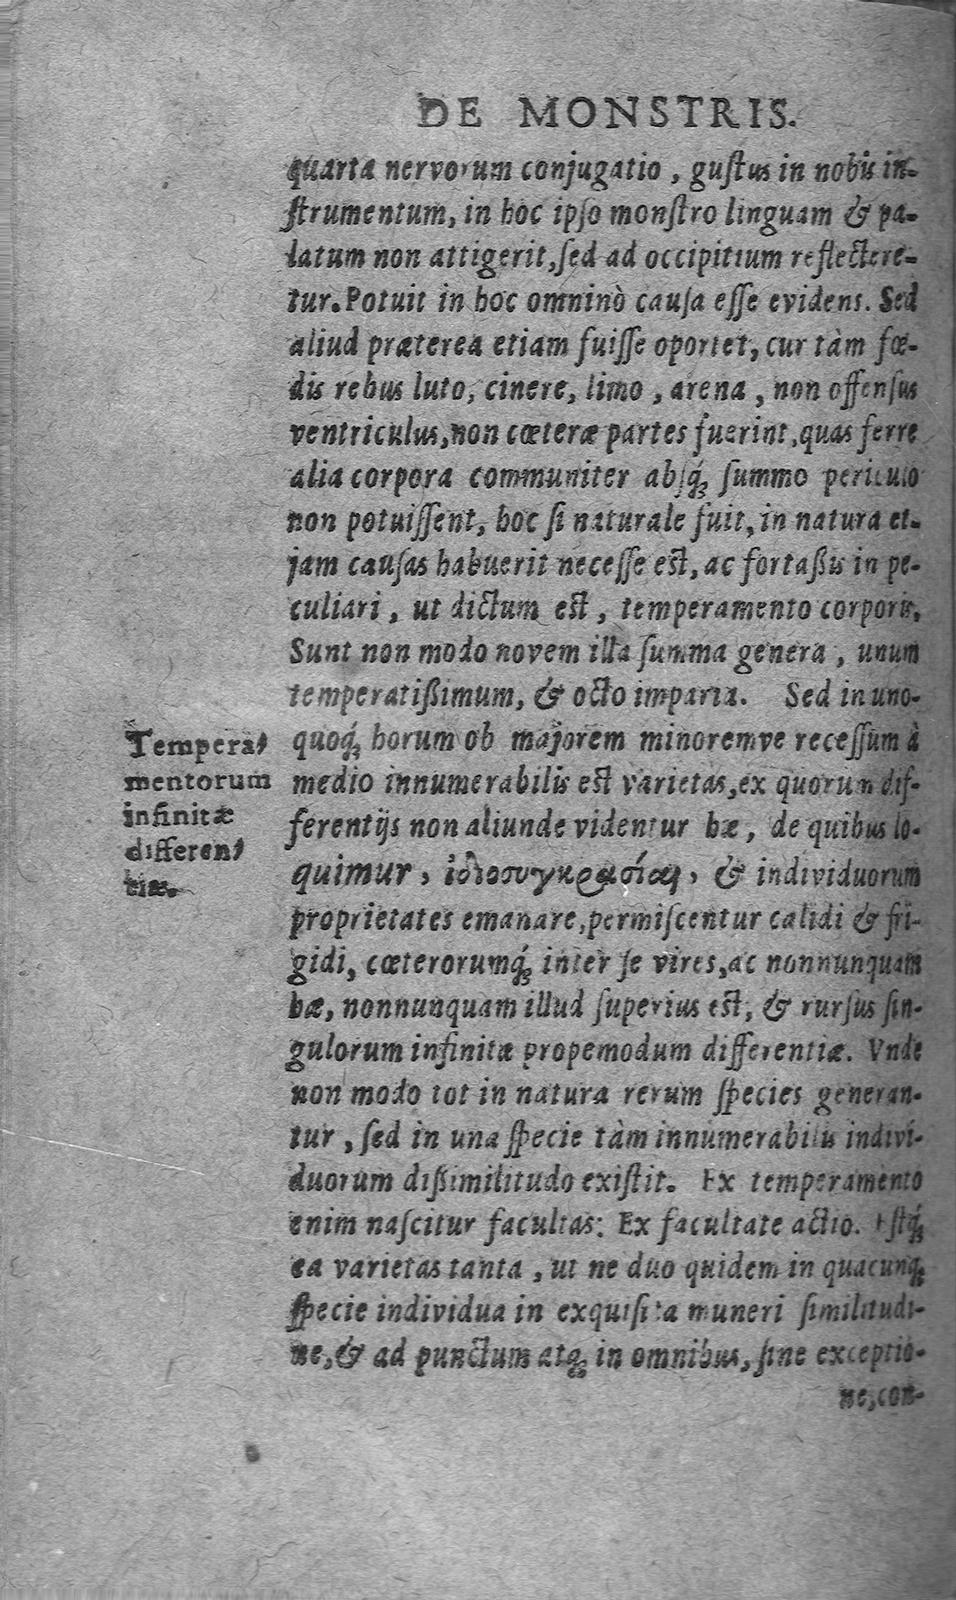 DE MONSTRIS.
quarta nervorum conjugatio, gustus in nobis in-
strumentum, in hoc ipso monstro linguam & pa-
latum non attigerit, sed ad occipitium reflectere-
tur. Potuit in hoc omninò causa esse evidens. Sed
aliud præterea etiam fuisse oportet, cur tàm fœ-
dis rebus luto, cinere, limo, arena, non offensus
ventriculus, non cœteræ partes fuerint, quas ferre
alia corpora communiter absq́; summo periculo
non potuissent, hoc si naturale fuit, in natura et-
jam causas habuerit necesse est, ac fortaßis in pe-
culiari, ut dictum est, temperamento corporis.
Sunt non modo novem illa summa genera, unum
temperatißimum, & octo imparia. Sed in uno-
quoq́; horum ob majorem minoremve recessum à
medio innumerabilis est varietas, ex quorum dif-
ferentijs non aliunde videntur hæ, de quibus lo-
quimur, ἰδιοσυγκρασίαι, & individuorum
proprietates emanare, permiscentur calidi & fri-
gidi, cœterorumq́; inter se vires, ac nonnunquam
hæ, nonnunquam illud superius est, & rursus sin-
gulorum infinitæ propemodum differentiæ. Vnde
non modo tot in natura rerum species generan-
tur, sed in una specie tàm innumerabilis indivi-
duorum dißimilitudo existit. Ex temperamento
enim nascitur facultas: Ex facultate actio. Estq́;
ea varietas tanta, ut ne duo quidem in quacunq;
specie individua in exquisita muneri similitudi-
ne, & ad punctum atq; in omnibus, sine exceptio-
ne, con-
Tempera-
mentorum
infinitæ
differen-
tiæ.